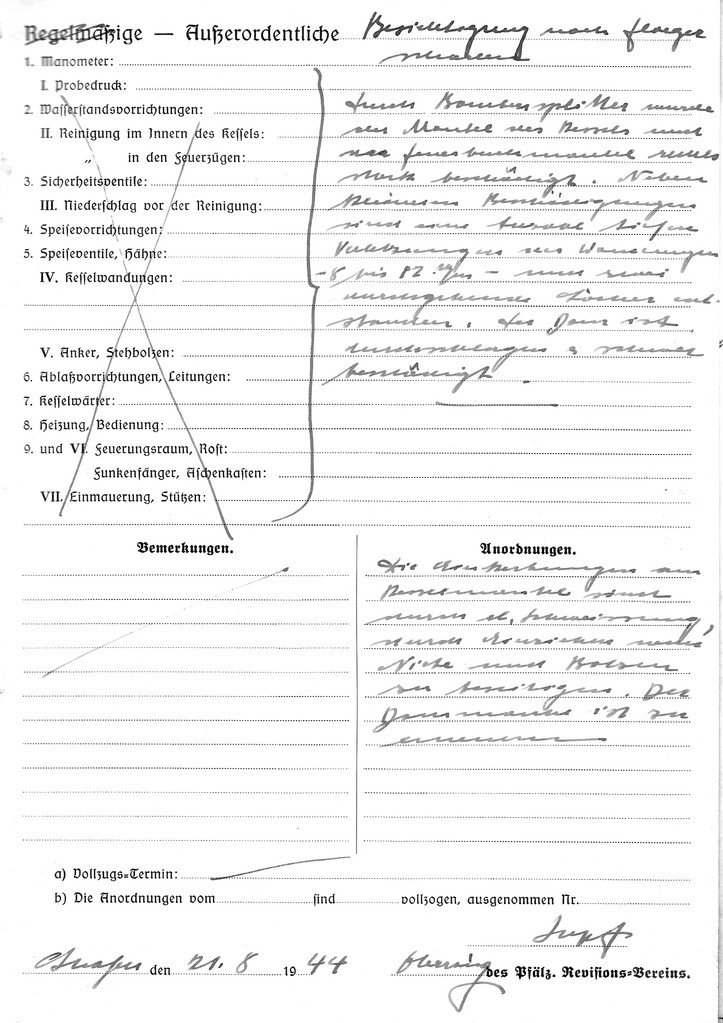 Regelmäßige — Außerordentliche Besichtigung nach Flieger
schaden
1. Manometer:
I. Probedruck:
2. Wasserstandsvorrichtungen: durch Bombensplitter wurde
II. Reinigung im Innern des Kessels: der Mantel des Kessels und
„ in den Feuerzügen: Feuerbuchsmantel
3. Sicherheitsventile: stark beschädigt. Neben
III. Niederschlag vor der Reinigung: kleineren Beschädigungen
4. Speisevorrichtungen: sind eine Anzahl tiefen
5. Speiseventile, Hähne: Verletzungen der Wandungen
IV. Kesselwandungen: -8 bis 12 - und zwei
durchgehende Löcher ent-
standen. Der Dom ist
V. Anker, Stehbolzen: durchschlagen & schwer
6. Ablaßvorrichtungen, Leitungen: beschädigt.
7. Kesselwärter:
8. Heizung, Bedienung:
9. und VI. Feuerungsraum, Rost:
Funkenfänger, Aschenkasten:
VII. Einmauerung, Stützen:
Bemerkungen.
Anordnungen.
Die am
Kesselmantel sind
durch el. Schweissung,
durch Einziehen
Niete und Bolzen
zu beseitigen. Der
Dommantel ist zu
erneuern
a) Vollzugs-Termin:
b) Die Anordnungen vom sind vollzogen, ausgenommen Nr.
den 21. 8 1944 Obering. des Pfälz. Revisions-Vereins.